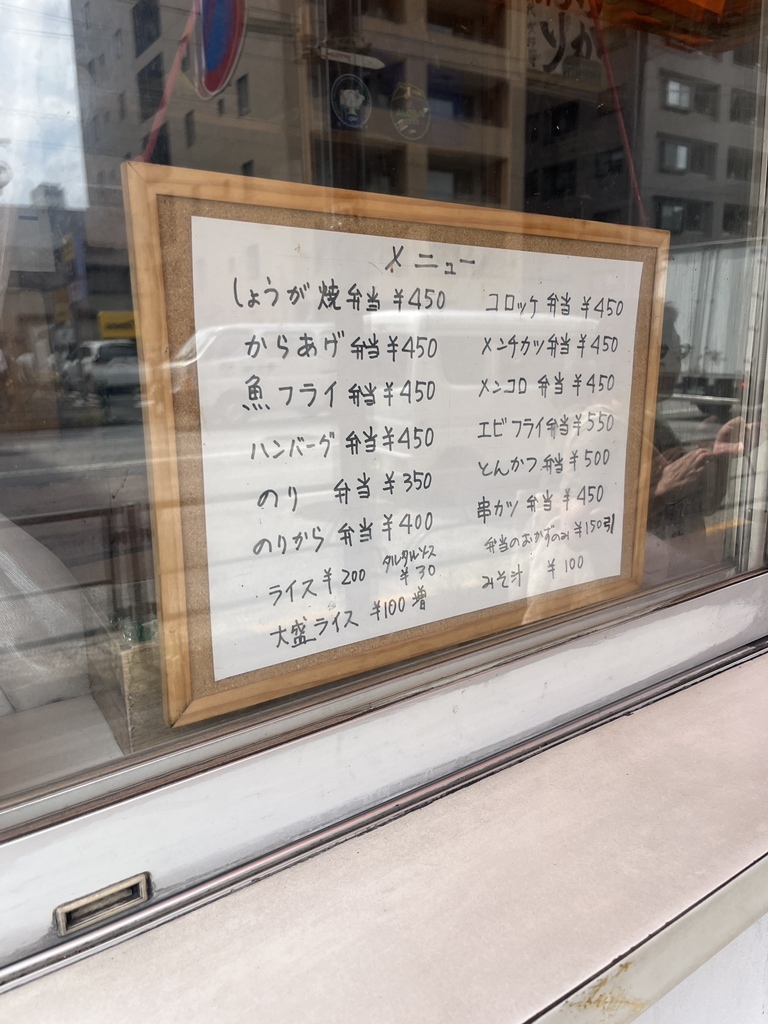 メニュー
しょうが焼弁当 ¥450
からあげ弁当 ¥450
魚フライ弁当 ¥450
ハンバーグ弁当 ¥450
のり 弁当 ¥350
のりから弁当 ¥400
ライス ¥200
タルタルソース
¥30
大盛ライス ¥100増
コロッケ弁当 ¥450
メンチカツ弁当 ¥450
メンコロ弁当 ¥450
エビフライ弁当 ¥550
とんかつ弁当 ¥500
串カツ弁当 ¥450
弁当のおかずのみ ¥150引
みそ汁 ¥100